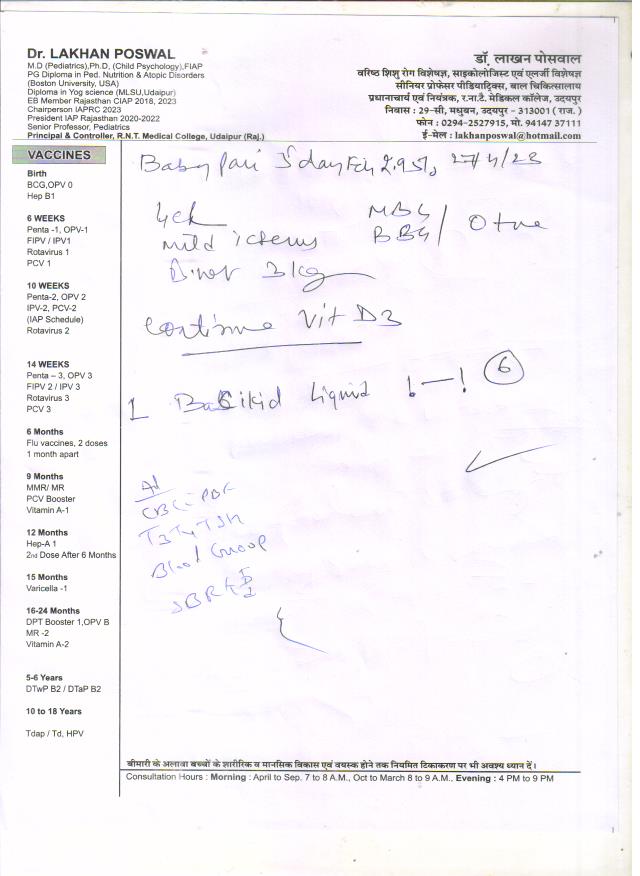 Dr. LAKHAN POSWAL
M.D (Pediatrics),Ph.D, (Child Psychology),FIAP
PG Diploma in Ped. Nutrition & Atopic Disorders
(Boston University, USA)
Diploma in Yog science (MLSU,Udaipur)
EB Member Rajasthan CIAP 2018, 2023
Chairperson IAPRC 2023
President IAP Rajasthan 2020-2022
Senior Professor, Pediatrics
Principal & Controller, R.N.T. Medical College, Udaipur (Raj.)
डॉ. लाखन पोसवाल
वरिष्ठ शिशु रोग विशेषज्ञ, साइकोलोजिस्ट एवं एलर्जी विशेषज्ञ
सीनियर प्रोफेसर पीडियाट्रिक्स, बाल चिकित्सालाय
प्रधानाचार्य एवं नियंत्रक, र.ना.टै. मेडिकल कॉलेज, उदयपुर
निवास : 29-सी, मधुबन, उदयपुर - 313001 ( राज. )
फोन : 0294-2527915, मो. 94147 37111
ई-मेल : lakhanposwal@hotmail.com
VACCINES
Birth
BCG,OPV 0
Hep B1
6 WEEKS
Penta -1, OPV-1
FIPV / IPV1
Rotavirus 1
PCV 1
10 WEEKS
Penta-2, OPV 2
IPV-2, PCV-2
(IAP Schedule)
Rotavirus 2
14 WEEKS
Penta – 3, OPV 3
FIPV 2 / IPV 3
Rotavirus 3
PCV 3
6 Months
Flu vaccines, 2 doses
1 month apart
9 Months
MMR/ MR
PCV Booster
Vitamin A-1
12 Months
Hep-A 1
2nd Dose After 6 Months
15 Months
Varicella -1
16-24 Months
DPT Booster 1,OPV B
MR -2
Vitamin A-2
5-6 Years
DTwP B2 / DTaP B2
10 to 18 Years
Tdap / Td, HPV
Baby Pari 5 day 27/4/23
MBG
BBG / O +ve
mild icterus
3kg
continue Vit D3
1 Liquid 6
Ad
CBC PBF
T3 T4 TSH
Blood Group
बीमारी के अलावा बच्चों के शारीरिक व मानसिक विकास एवं वयस्क होने तक नियमित टिकाकरण पर भी अवश्य ध्यान दें।
Consultation Hours : Morning : April to Sep. 7 to 8 A.M., Oct to March 8 to 9 A.M., Evening : 4 PM to 9 PM